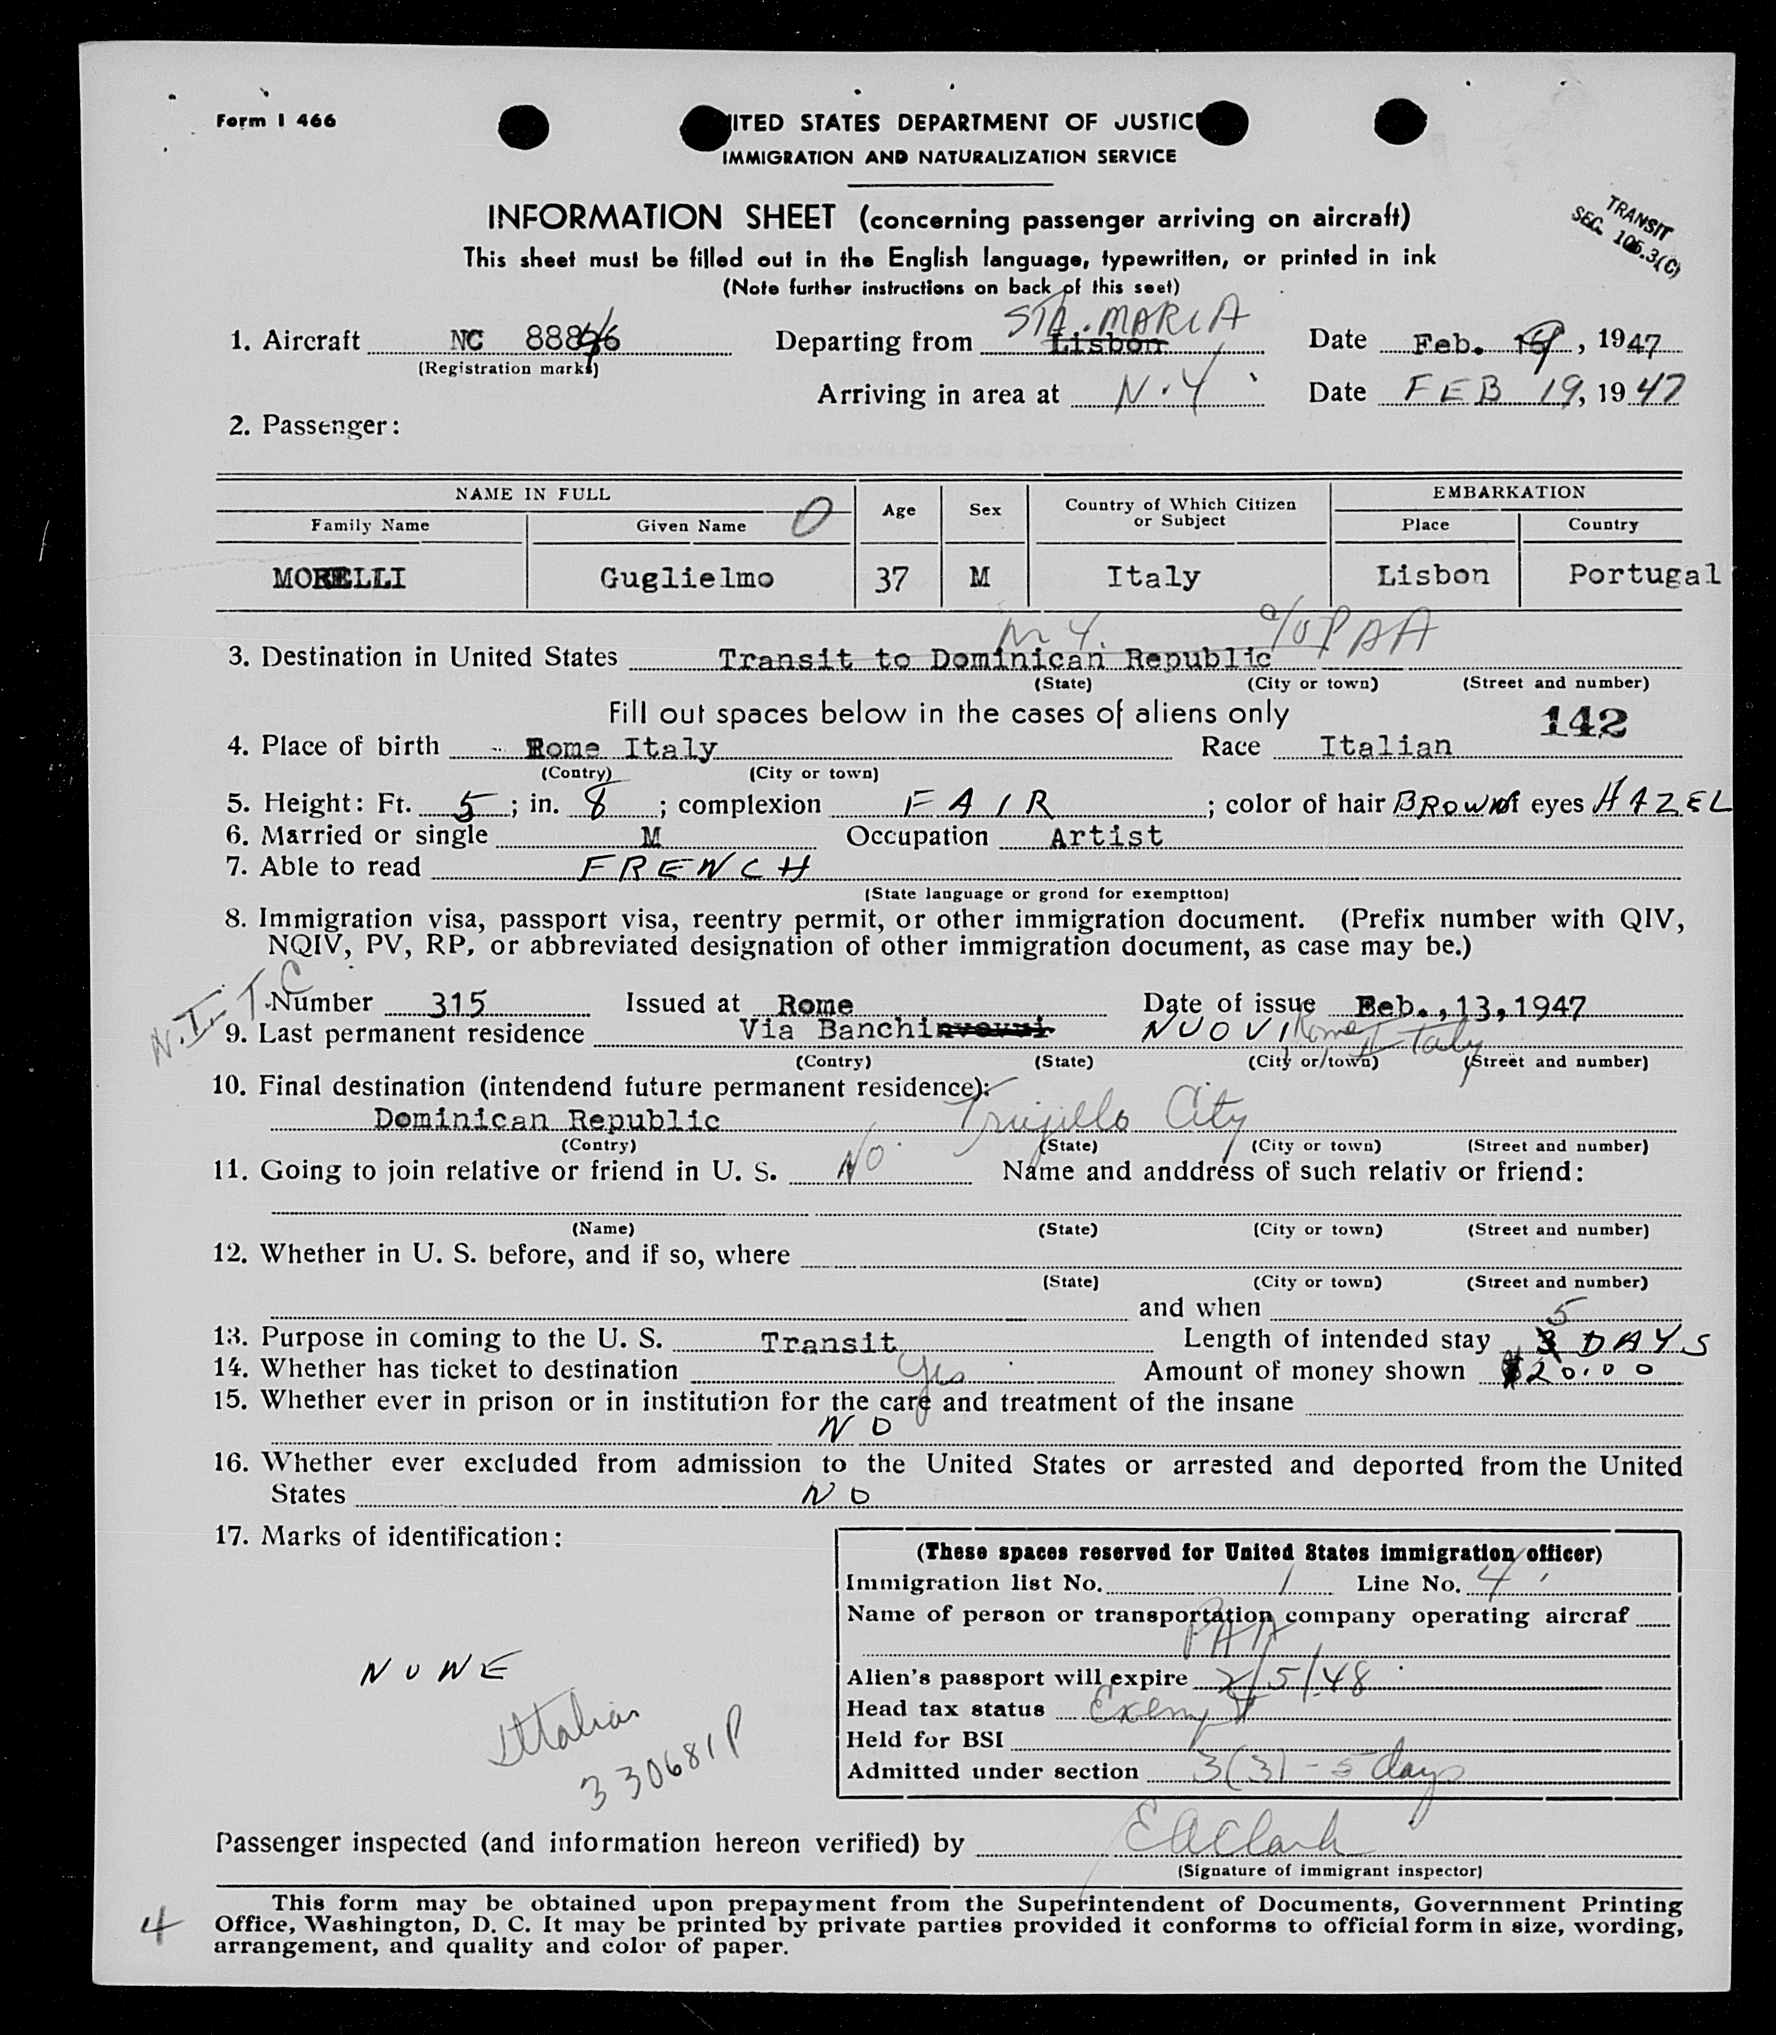 Form I 466
UNITED STATES DEPARTMENT OF JUSTICE
IMMIGRATION AND NATURALIZATION SERVICE
INFORMATION SHEET (concerning passenger arriving on aircraft)
TRANSIT
SEC. 105.3(C)
This sheet must be filled out in the English language, typewritten, or printed in ink
(Note further instructions on back of this seet)
STA. MARIA
1. Aircraft NC 888 6 Departing from Lisbon Date Feb. , 1947
(Registration marks)
Arriving in area at N.Y. Date FEB 19, 1947
2. Passenger:
NAME IN FULL O Age Sex Country of Which Citizen or Subject EMBARKATION
Family Name Given Name Place Country
MORELLI Guglielmo 37 M Italy Lisbon Portugal
N.Y. c/o PAA
3. Destination in United States Transit to Dominican Republic
(State) (City or town) (Street and number)
Fill out spaces below in the cases of aliens only
142
4. Place of birth Rome Italy Race Italian
(Contry) (City or town)
5. Height: Ft. 5; in. 8; complexion FAIR; color of hair BROWN of eyes HAZEL
6. Married or single M Occupation Artist
7. Able to read FRENCH
(State language or grond for exemptton)
8. Immigration visa, passport visa, reentry permit, or other immigration document. (Prefix number with QIV,
NQIV, PV, RP, or abbreviated designation of other immigration document, as case may be.)
N.I. T.C
Number 315 Issued at Rome Date of issue Feb.,13,1947
9. Last permanent residence Via Banchi NUOVI Rome Italy
(Contry) (State) (City or town) (Street and number)
10. Final destination (intendend future permanent residence):
Dominican Republic Trujillo City
(Contry) (State) (City or town) (Street and number)
11. Going to join relative or friend in U. S. NO Name and anddress of such relativ or friend:
(Name) (State) (City or town) (Street and number)
12. Whether in U. S. before, and if so, where
(State) (City or town) (Street and number)
and when
13. Purpose in coming to the U. S. Transit Length of intended stay 5 DAYS
14. Whether has ticket to destination Yes Amount of money shown $20.00
15. Whether ever in prison or in institution for the care and treatment of the insane
NO
16. Whether ever excluded from admission to the United States or arrested and deported from the United
States NO
17. Marks of identification:
NONE
Italian
330681P
(These spaces reserved for United States immigration officer)
Immigration list No. 1 Line No. 4
Name of person or transportation company operating aircraf
PAA
Alien's passport will expire 2/5/48
Head tax status Exempt
Held for BSI
Admitted under section 3(3) - 5 days
Passenger inspected (and information hereon verified) by EAClark
(Signature of immigrant inspector)
This form may be obtained upon prepayment from the Superintendent of Documents, Government Printing
Office, Washington, D. C. It may be printed by private parties provided it conforms to official form in size, wording,
arrangement, and quality and color of paper.
4